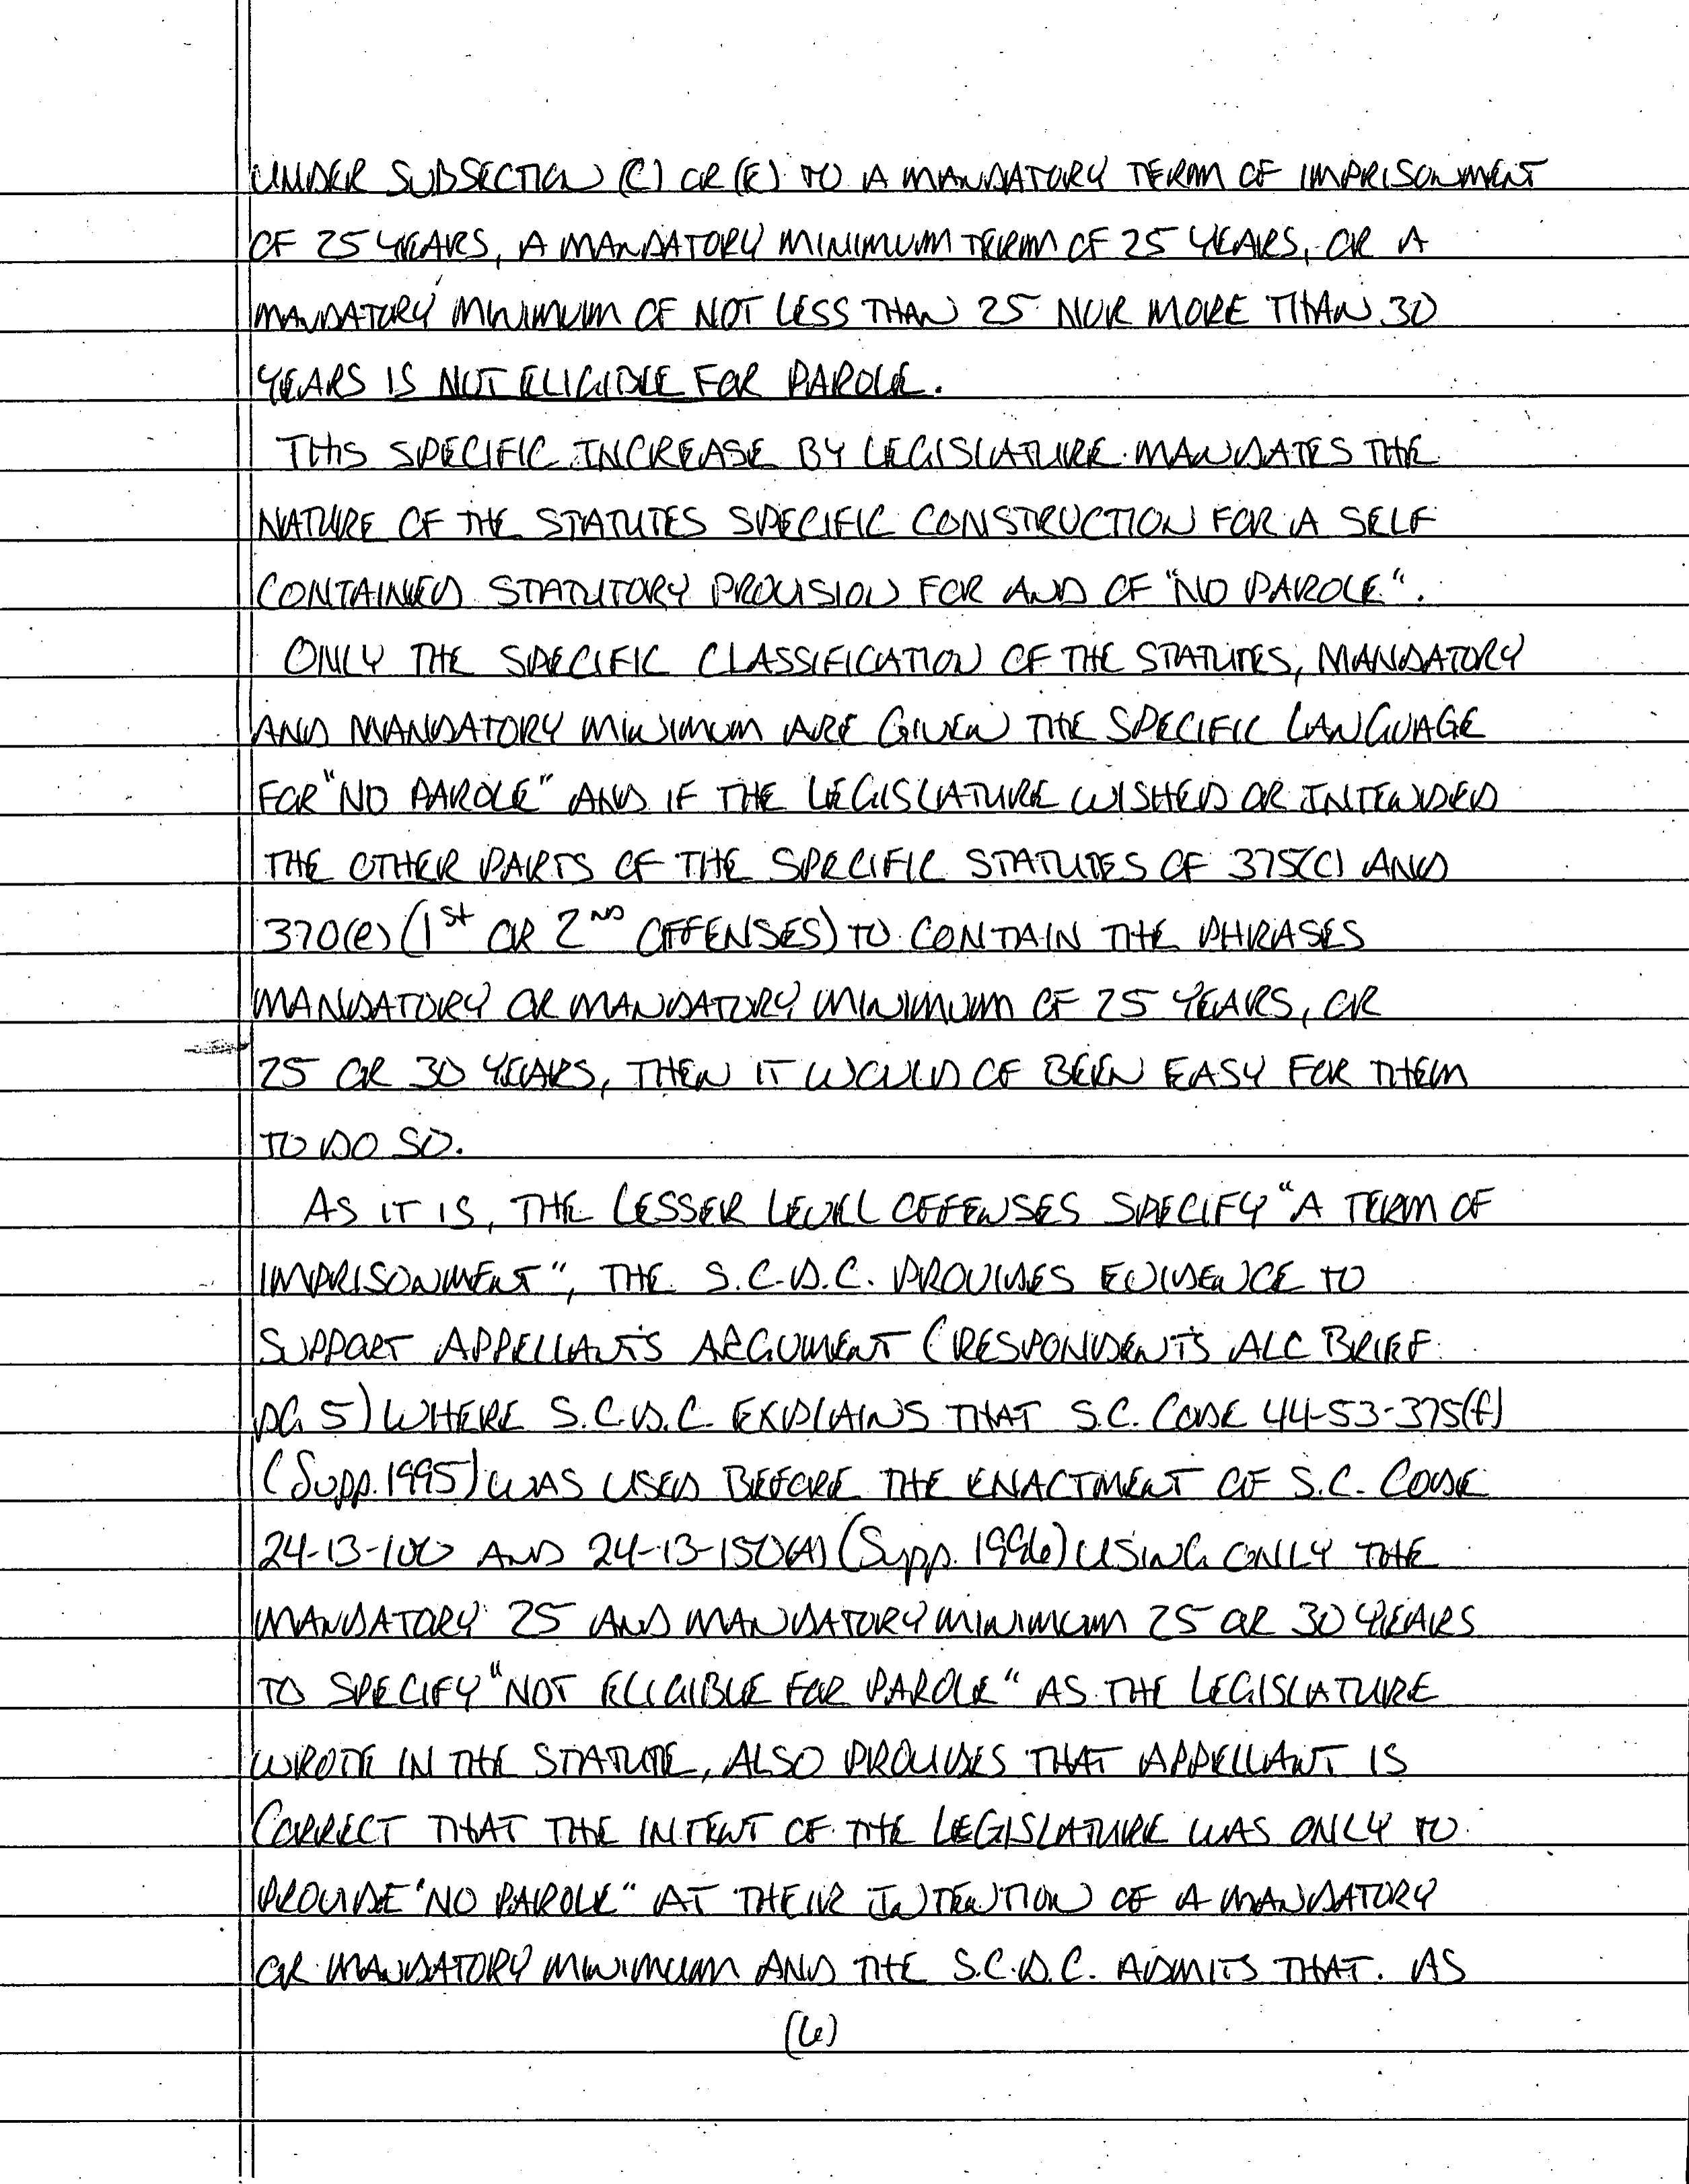 UNDER SUBSECTION (C) OR (E) TO A MANDATORY TERM OF IMPRISONMENT
OF 25 YEARS, A MANDATORY MINIMUM TERM OF 25 YEARS, OR A
MANDATORY MINIMUM OF NOT LESS THAN 25 NOR MORE THAN 30
YEARS IS NOT ELIGIBLE FOR PAROLE.
THIS SPECIFIC INCREASE BY LEGISLATURE MANDATES THE
NATURE OF THE STATUTES SPECIFIC CONSTRUCTION FOR A SELF
CONTAINED STATUTORY PROVISION FOR AND OF "NO PAROLE".
ONLY THE SPECIFIC CLASSIFICATION OF THE STATUTES, MANDATORY
AND MANDATORY MINIMUM ARE GIVEN THE SPECIFIC LANGUAGE
FOR "NO PAROLE" AND IF THE LEGISLATURE WISHED OR INTENDED
THE OTHER PARTS OF THE SPECIFIC STATUTES OF 375(C) AND
370(e) (1st OR 2ND OFFENSES) TO CONTAIN THE PHRASES
MANDATORY OR MANDATORY MINIMUM OF 25 YEARS, OR
25 OR 30 YEARS, THEN IT WOULD OF BEEN EASY FOR THEM
TO DO SO.
AS IT IS, THE LESSER LEVEL OFFENSES SPECIFY "A TERM OF
IMPRISONMENT", THE S.C.D.C. PROVIDES EVIDENCE TO
SUPPORT APPELLANT'S ARGUMENT (RESPONDENT'S ALC BRIEF
PG 5) WHERE S.C.D.C. EXPLAINS THAT S.C. CODE 44-53-375(f)
(Supp. 1995) WAS USED BEFORE THE ENACTMENT OF S.C. CODE
24-13-100 AND 24-13-150(A) (Supp. 1996) USING ONLY THE
MANDATORY 25 AND MANDATORY MINIMUM 25 OR 30 YEARS
TO SPECIFY "NOT ELIGIBLE FOR PAROLE" AS THE LEGISLATURE
WROTE IN THE STATUTE, ALSO PROVIDES THAT APPELLANT IS
CORRECT THAT THE INTENT OF THE LEGISLATURE WAS ONLY TO
PROVIDE "NO PAROLE" AT THEIR INTENTION OF A MANDATORY
OR MANDATORY MINIMUM AND THE S.C.D.C. ADMITS THAT. AS
(6)